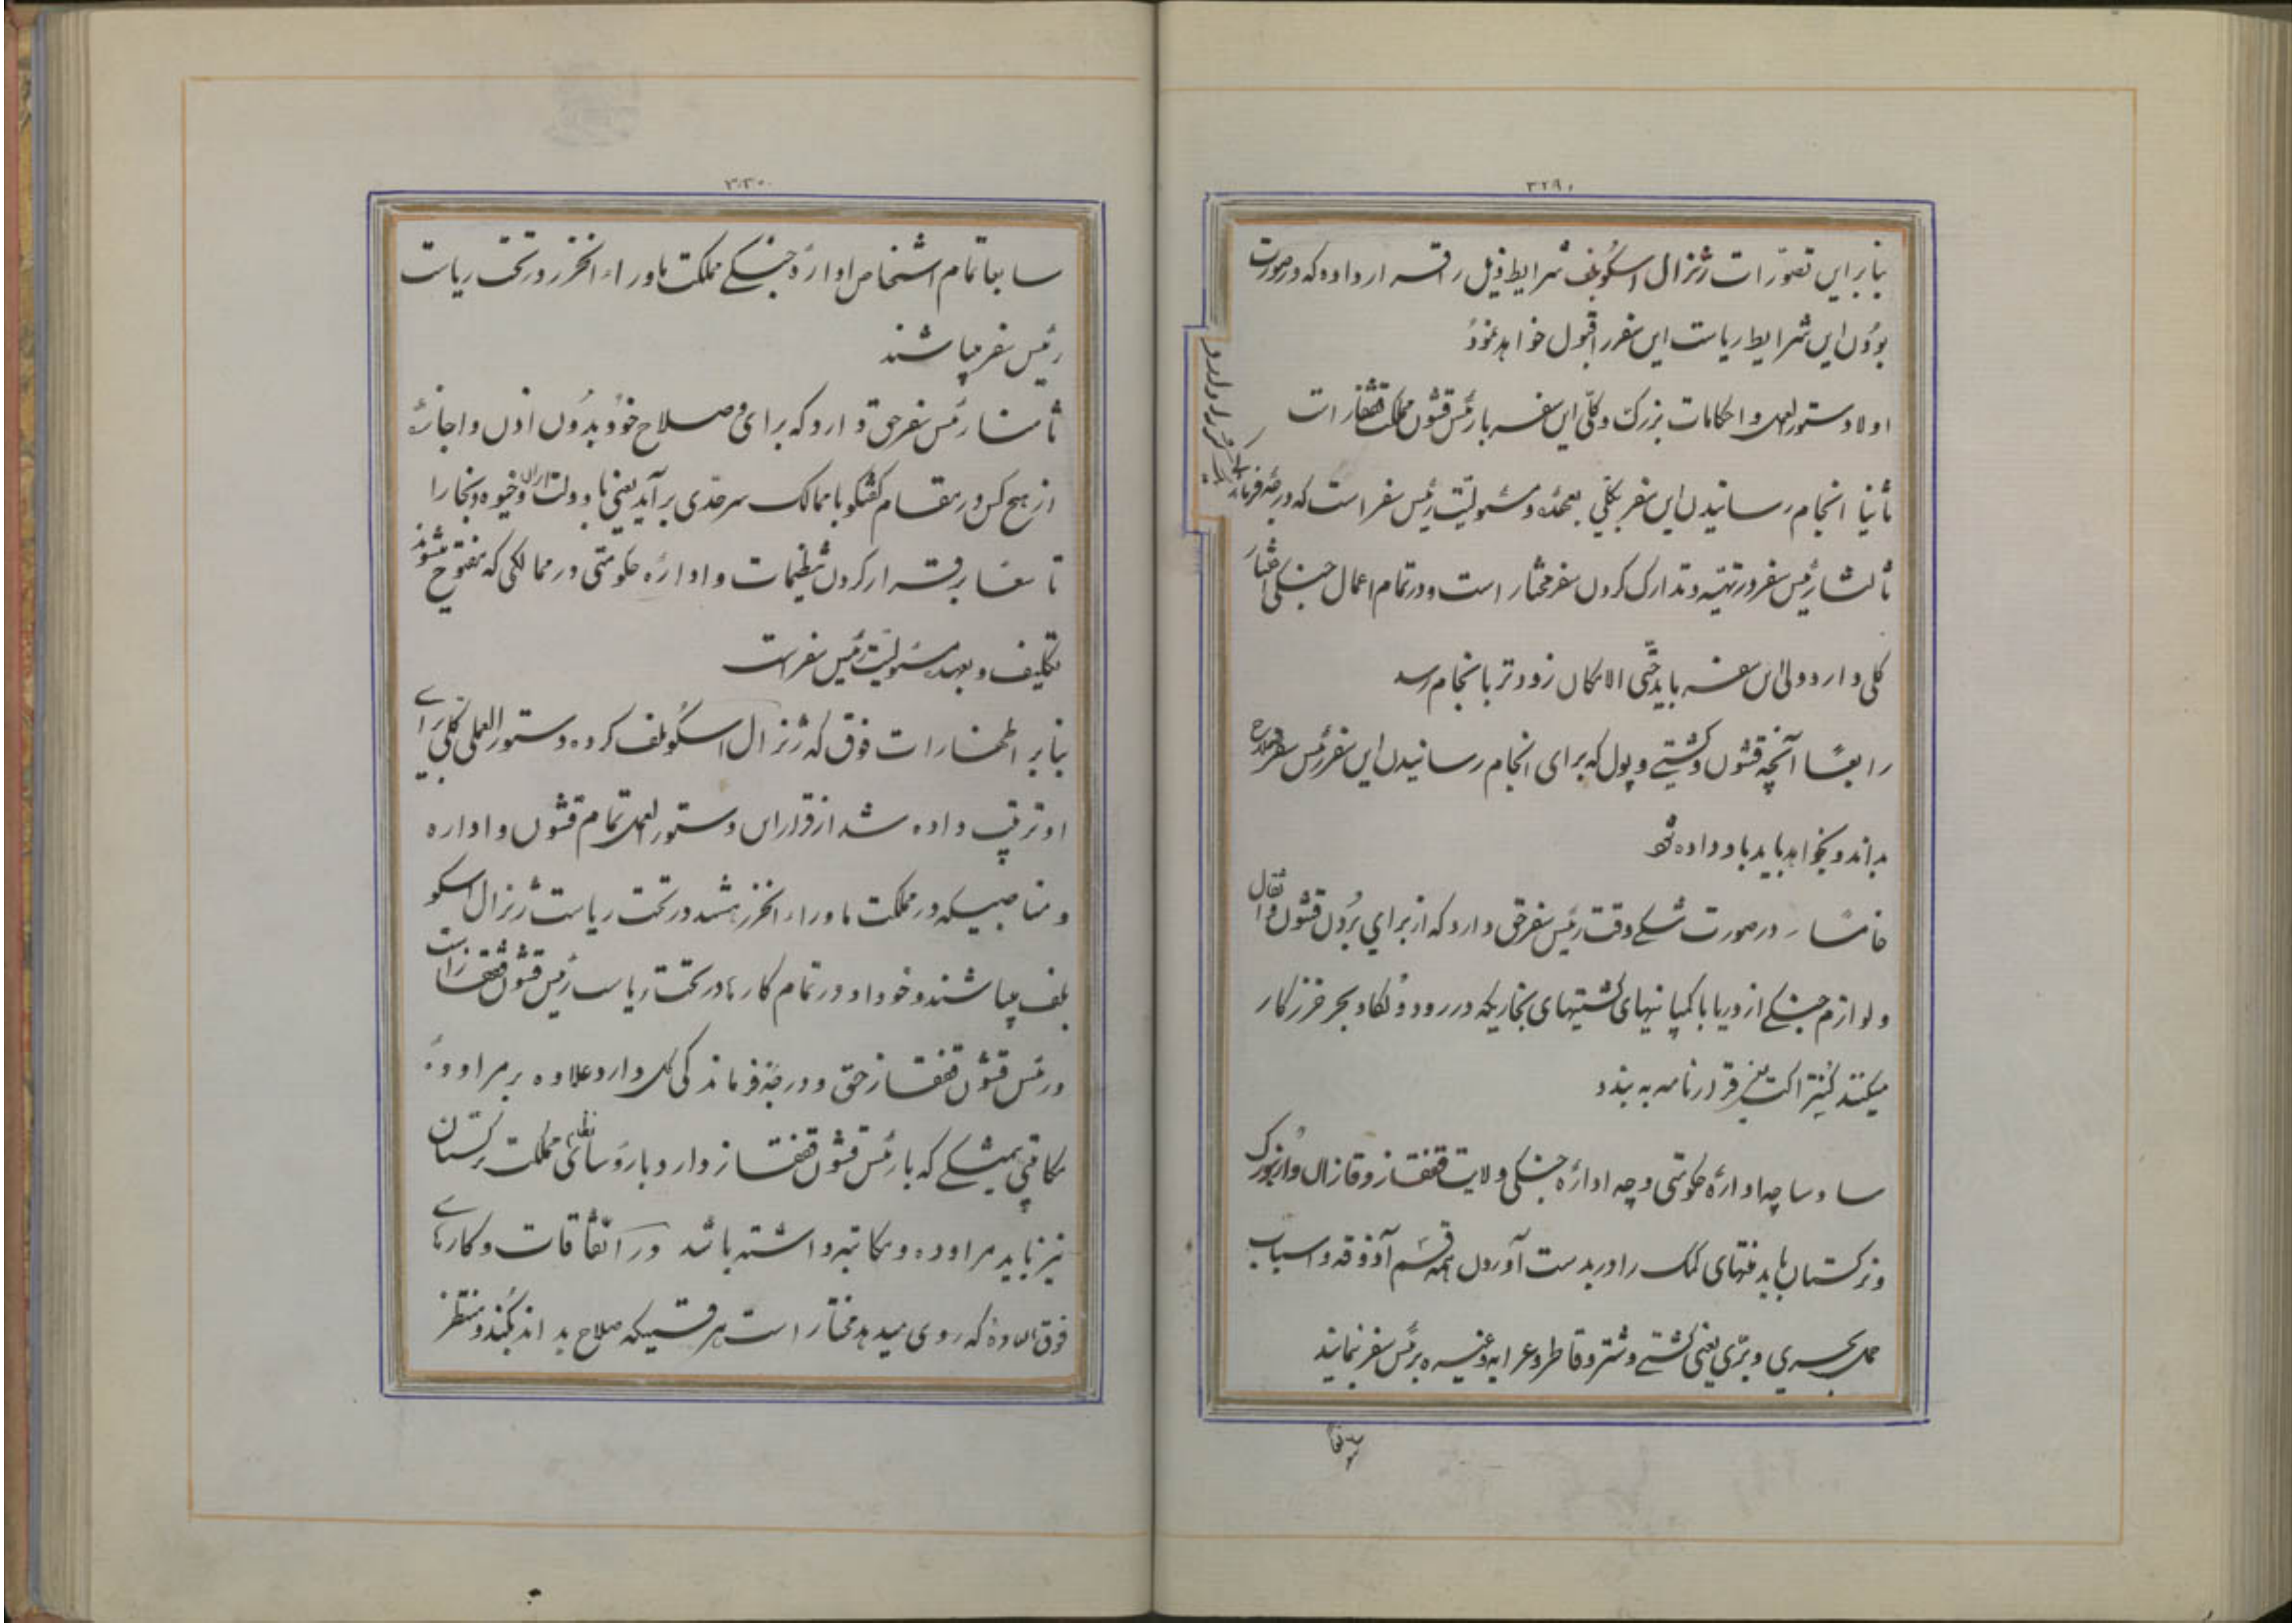 ۳۲۹
بنابراین تصوّرات ژنرال اسکوبلف شرایط ذیل را قرار داده که در صورت
بودن این شرایط ریاست این سفر را قبول خواهد نمود
اولا دستورالعمل و احکامات بزرک و کلّی این سفر با رئیس قشون مملکت قفقاز است
ثانیا انجام رسانیدن این سفر بکلّی بعهده و مسئولیّت رئیس سفر است که درجهٔ فرمان
کلی اردو را دارد
ثالثا رئیس سفر در تهیّه و تدارک کردن سفر مختار است و در تمام اعمال جنکی اختیار
کلی دارد ولی این سفر باید حتّی الامکان زودتر بانجام رسد
رابعًا آنچه قشون و کشتی و پول که برای انجام رسانیدن این سفر رئیس سفر صلاح
بداند و بخواهد باید باو داده شود
خامسًا در صورت تنکی وقت رئیس سفر حق دارد که از برای بردن قشون و اثقال
و لوازم جنکی از دریا با کمپانیهای کشتیهای بخاریکه در رود ولکا و بحر خزر کار
میکنند کنتراکت یعنی قرارنامه به بندد
سادسا چه ادارهٔ حکومتی و چه ادارهٔ جنکی ولایت قفقاز و قازان و ارنبورک
و ترکستان باید منتهای کمک را در بدست آوردن همه قسم آذوقه و اسباب
حمل بحری و برّی یعنی کشتی و شتر و قاطر و عرابه و غیره برئیس سفر بنمایند
سابعا
۳۳۰
سابعا تمام اشخاص ادارهٔ جنکی مملکت ماوراء الخزر در تحت ریاست
رئیس سفر میباشند
ثامنا رئیس سفر حق دارد که برای صلاح خود بدون اذن و اجازهٔ
از هیچ کس در مقام کفتکو با ممالک سرحدّی برآید یعنی با دولت ایران و خیوه و بخارا
تاسعًا برقرار کردن تنظیمات و ادارهٔ حکومتی در ممالکی که مفتوح میشوند
تکلیف و بعهده مسئولیّت رئیس سفر است
بنابر اظهارات فوق که ژنرال اسکوبلف کرده دستورالعملی کلی برای
او ترتیب داده شد از قرار این دستورالعمل تمام قشون و اداره
و مناصبیکه در مملکت ماوراء الخزر هستند در تحت ریاست ژنرال اسکو
بلف میباشند و خود او در تمام کارها در تحت ریاست رئیس قشون قفقاز است
و رئیس قشون قفقاز حق و درجهٔ فرماندکی کل دارد علاوه بر مراوده و
مکاتبهٔ همیشکی که با رئیس قشون قفقاز دارد با روسای نظامی مملکت ترکستان
نیز باید مراوده و مکاتبه داشته باشد در اتّفاقات و کارهای
فوق العاده که روی میدهد مختار است هر قسمیکه صلاح بداند بکند و منتظر